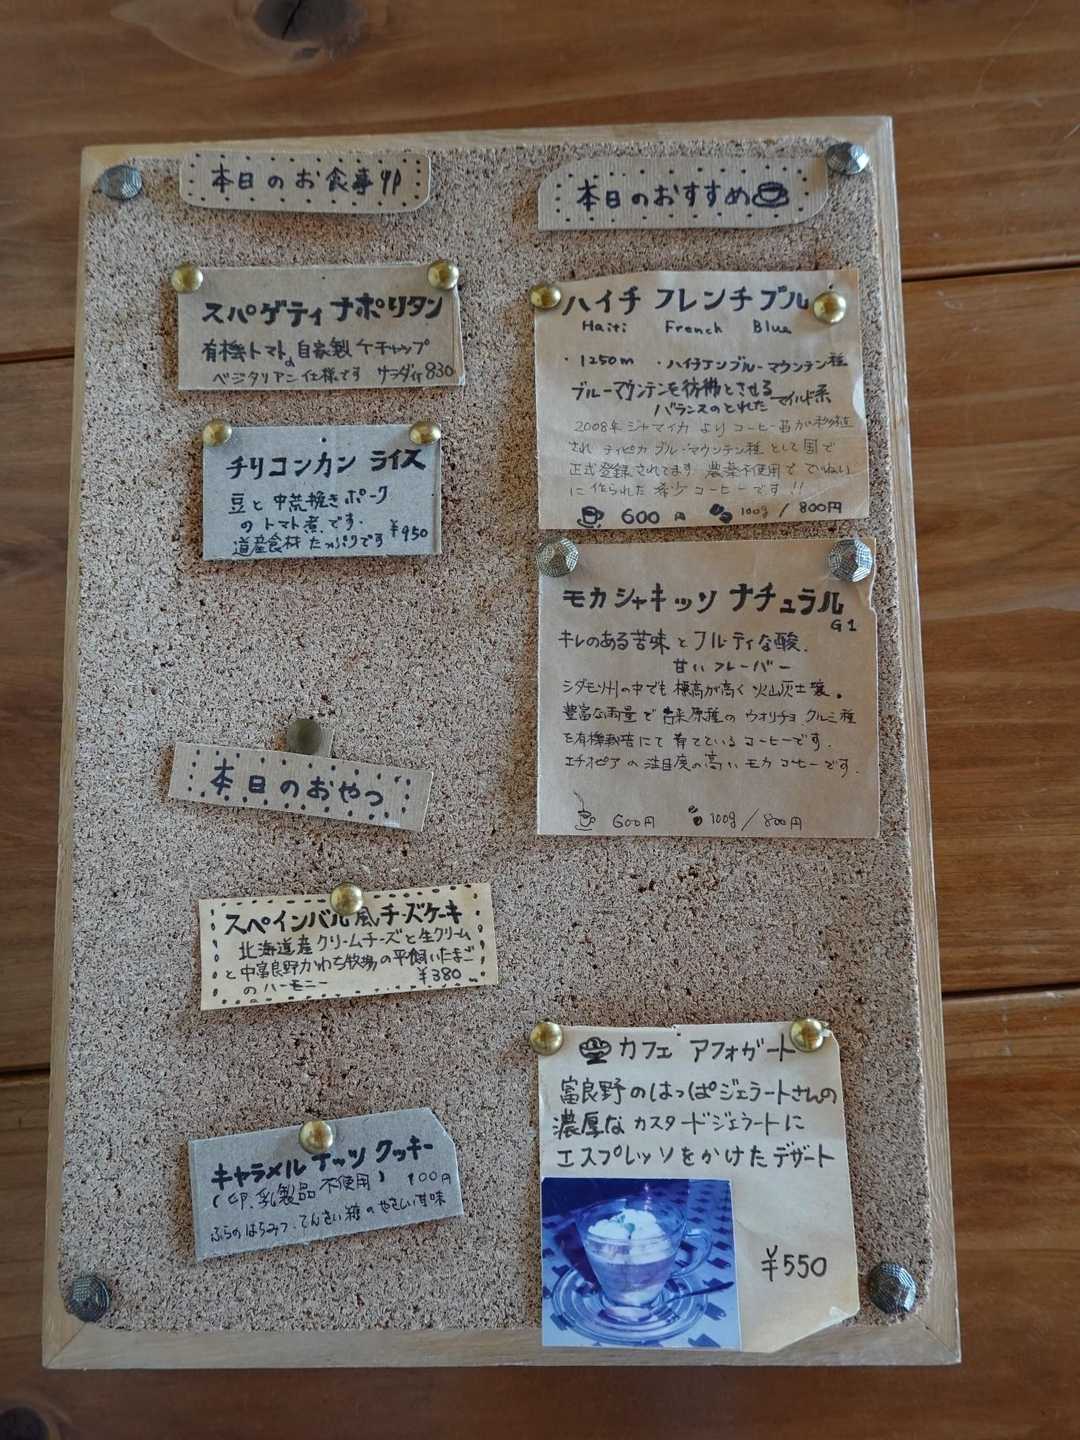 本日のお食事
スパゲティ ナポリタン
有機トマトの自家製ケチャップ
ベジタリアン仕様です サラダ付830
チリコンカン ライス
豆と中荒挽きポーク
のトマト煮です。
道産食材たっぷりです ¥950
本日のおやつ
スペインバル風チーズケーキ
北海道産クリームチーズと生クリーム
と中富良野かわち牧場の平飼いたまご
のハーモニー ¥380
キャラメルナッツ クッキー
(卵、乳製品不使用) 100円
ふらのはちみつ、てんさい糖のやさしい甘味
本日のおすすめ
ハイチ フレンチブルー
Haiti French Blue
・1250m ・ハイチアンブルーマウンテン種
ブルーマウンテンを彷彿とさせる
バランスのとれた マイルド系
2008年ジャマイカよりコーヒー苗が移植
され ティピカ ブルーマウンテン種として国で
正式登録されてます 農薬不使用でていねい
に作られた希少コーヒーです!!
600円 100g / 800円
モカ シャキッソ ナチュラル
G1
キレのある苦味とフルーティな酸、
甘いフレーバー
シダモ州の中でも標高が高く火山灰土壌。
豊富な雨量で古来原種のウオリチョ クルミ種
を有機栽培にて育てているコーヒーです。
エチオピアの注目度の高いモカコーヒーです。
600円 100g / 800円
カフェ アフォガート
富良野のはっぱジェラートさんの
濃厚なカスタードジェラートに
エスプレッソをかけたデザート
¥550